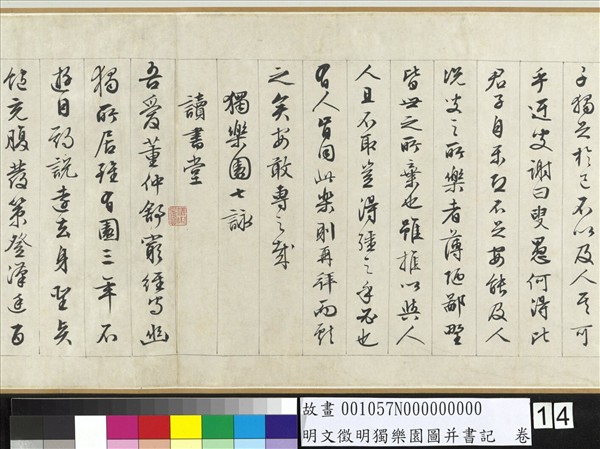 子獨足於己不以及人其可
乎迂叟謝曰叟愚何得比
君子自樂恐不足安能及人
況叟之所樂者薄陋鄙野
皆世之所棄也雖推以與人
人且不取豈得強之乎必也
有人肯同此樂則再拜而獻
之矣安敢專之哉
獨樂園七詠
讀書堂
吾愛董仲舒窮經守幽
獨所居雖有園三年不
遊目邪說遠去身聖言
飽充腹發策登漢廷百
故畫 001057N000000000
明文徵明獨樂園圖并書記 卷
14